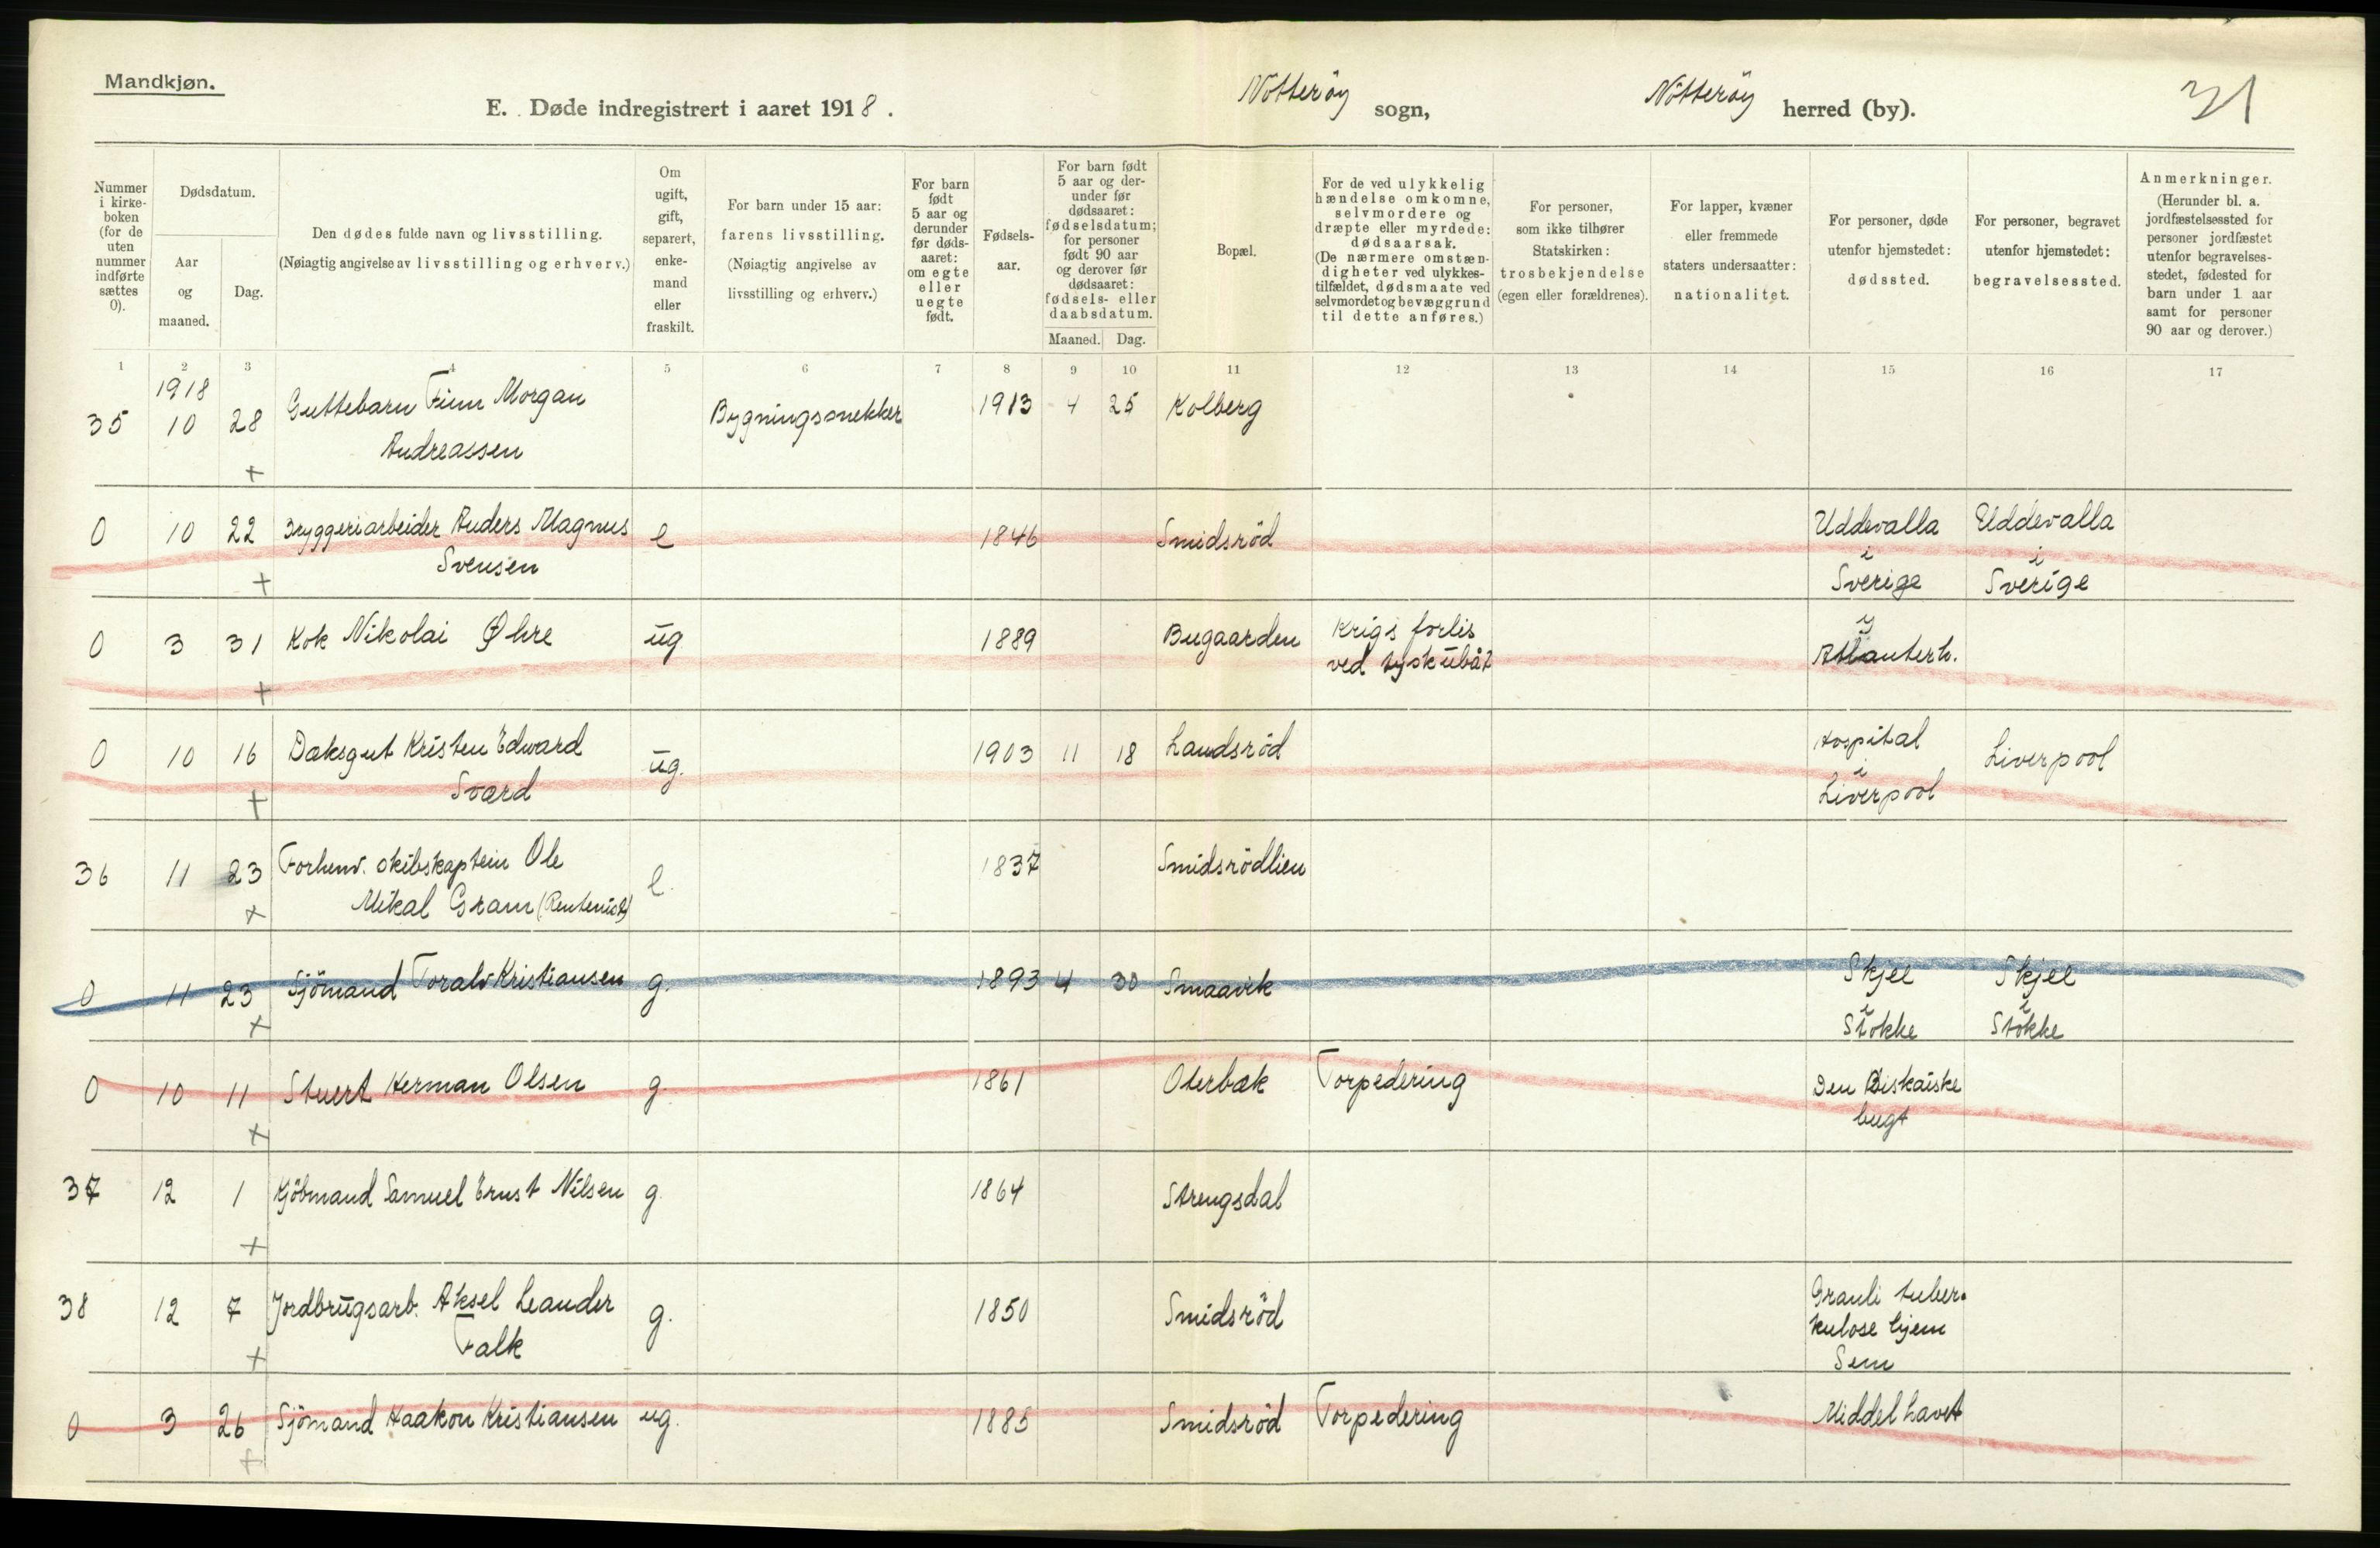 Mandkjøn.
E. Døde indregistrert i aaret 1918. Nötteröy sogn, Nötteröy herred (by). 31
Nummer i kirkeboken (for de uten nummer indførte sættes 0).
Dødsdatum.
Aar og maaned.
Dag.
Den dødes fulde navn og livsstilling.
(Nøiagtig angivelse av livsstilling og erhverv.)
Om ugift, gift, separert, enkemand eller fraskilt.
For barn under 15 aar:
farens livsstilling.
(Nøiagtig angivelse av
livsstilling og erhverv.)
For barn født 5 aar og derunder før dødsaaret: om egte eller uegte født.
Fødselsaar.
For barn født 5 aar og derunder før dødsaaret: fødselsdatum; for personer født 90 aar og derover før dødsaaret: fødsels- eller daabsdatum.
Maaned. Dag.
Bopæl.
For de ved ulykkelig hændelse omkomne, selvmordere og dræpte eller myrdede: dødsaarsak.
(De nærmere omstændigheter ved ulykkestilfældet, dødsmaate ved selvmordet og bevæggrund til dette anføres.)
For personer, som ikke tilhører Statskirken: trosbekjendelse (egen eller forældrenes).
For lapper, kvæner eller fremmede staters undersaatter: nationalitet.
For personer, døde utenfor hjemstedet: dødssted.
For personer, begravet utenfor hjemstedet: begravelsessted.
Anmerkninger.
(Herunder bl. a. jordfæstelsessted for personer jordfæstet utenfor begravelsesstedet, fødested for barn under 1 aar samt for personer 90 aar og derover.)
1 2 3 4 5 6 7 8 9 10 11 12 13 14 15 16 17
1918
35 10 28 Guttebarn Finn Morgan Bygningssnekker 1913 4 25 Kolberg
Andreassen
+
0 10 22 Bryggeriarbeider Anders Magnus e 1846 Smidsröd Uddevalla Uddevalla
Svensen i i
+ Sverige Sverige
0 3 31 Kok Nikolai Øhre ug 1889 Bugaarden Krigsforlis
ved tysk ubåt Atlanterh.
+
0 10 16 Daksgut Kristen Edward ug. 1903 11 18 Landsröd Hospital Liverpool
Sværd i
+ Liverpool
36 11 23 Forhenv. skibskaptein Ole e. 1837 Smidsrödlien
+ Mikal Gram (Rentenist)
0 11 23 Sjömand Toralv Kristiansen g. 1893 4 30 Smaavik Skjel Skjel
i i
+ Stokke Stokke
0 10 11 Stuert Herman Olsen g 1861 Oterbæk Torpedering Den Biskaiske
bugt
+
37 12 1 Kjöbmand Samuel Ernst Nilsen g. 1864 Strengsdal
+
38 12 7 Jordbrugsarb. Aksel Leander g. 1850 Smidsröd Grauli tuber-
Falk kulose hjem
+ Sem
0 3 26 Sjömand Haakon Kristiansen ug. 1885 Smidsröd Torpedering Middelhavet
+